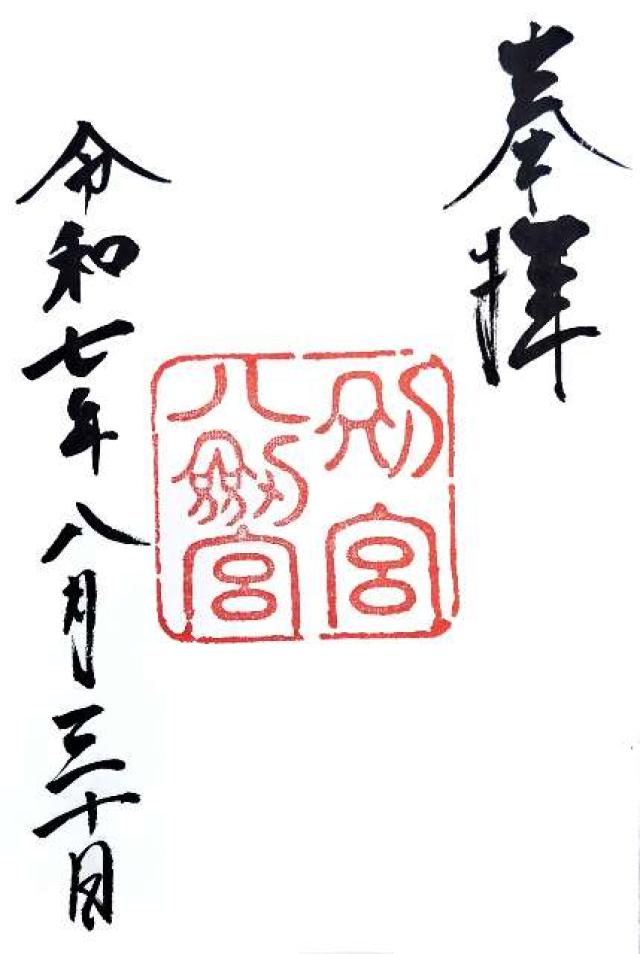 奉拝
別宮
八剱宮
令和七年八月三十日